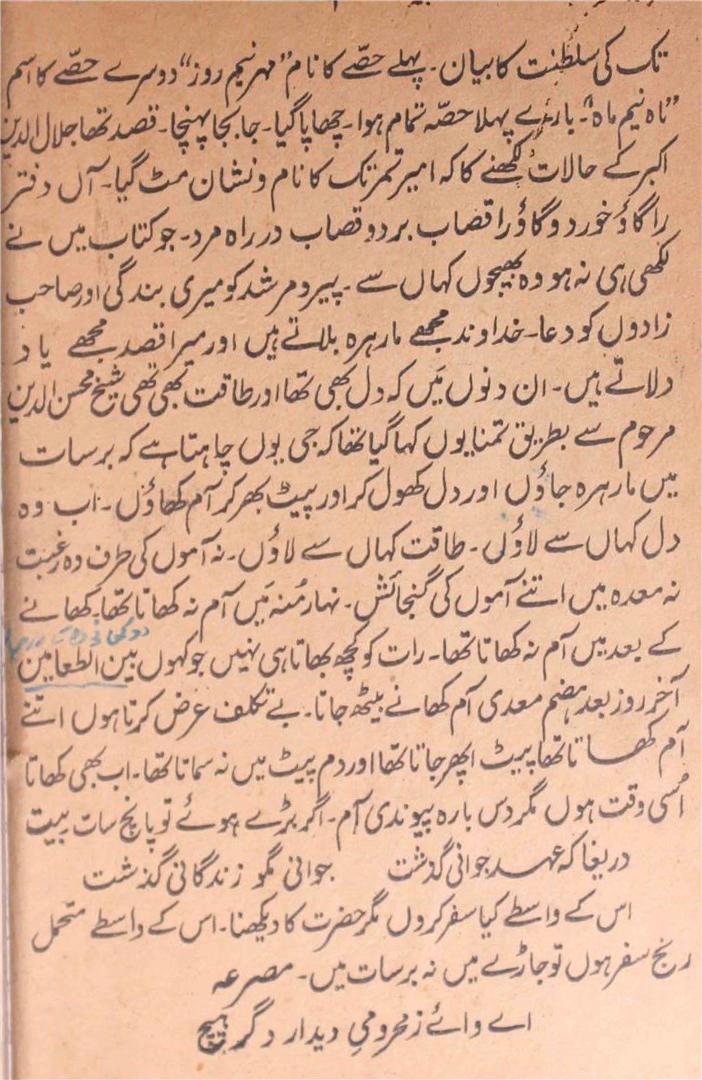 تک کی سلطنت کا بیان۔ پہلے حصّے کا نام "مہر نیم روز" دوسرے حصّے کا اسم
"ماہ نیم ماہ"۔ بارے پہلا حصّہ تمام ہوا۔ چھاپا گیا۔ جا بجا پہنچا۔ قصد تھا جلال الدین
اکبر کے حالات لکھنے کا کہ امیر تمر تک کا نام و نشان مٹ گیا۔ آں دفتر
را گاؤ خورد و گاؤ را قصاب برد و قصاب در راہ مرد۔ جو کتاب میں نے
لکھی ہی نہ ہو وہ بھیجوں کہاں سے۔ پیر و مرشد کو میری بندگی اور صاحب
زادوں کو دعا۔ خداوند مجھے مارہرہ بلاتے ہیں اور میرا قصد مجھے یاد
دلاتے ہیں۔ ان دنوں میں کہ دل بھی تھا اور طاقت بھی تھی شیخ محسن الدین
مرحوم سے بطریق تمنا یوں کہا گیا تھا کہ جی یوں چاہتا ہے کہ برسات
میں مارہرہ جاؤں اور دل کھول کر اور پیٹ بھر کر آم کھاؤں۔ اب وہ
دل کہاں سے لاؤں۔ طاقت کہاں سے لاؤں۔ نہ آموں کی طرف وہ رغبت
نہ معدہ میں اتنے آموں کی گنجائش۔ نہار مُنہ میں آم نہ کھاتا تھا۔ کھانے
کے بعد میں آم نہ کھاتا تھا۔ رات کو کچھ کھاتا ہی نہیں جو کہوں بین الطعامین
آخر روز بعد ہضم معدی آم کھانے بیٹھ جاتا۔ بے تکلف عرض کرتا ہوں اتنے
آم کھاتا تھا پیٹ اپھر جاتا تھا اور دم پیٹ میں نہ سماتا تھا۔ اب بھی کھاتا
اُسی وقت ہوں مگر دس بارہ پیوندی آم۔ اگر بڑے ہوئے تو پانچ سات بیت
دریغا کہ عہد جوانی گذشت جوانی مگو زندگانی گذشت
اس کے واسطے کیا سفر کروں مگر حضرت کا دیکھنا۔ اس کے واسطے متحمل
رنج سفر ہوں تو جاڑے میں نہ برسات میں۔ مصرعہ
اے وائے ز محرومیِ دیدار دگر ہیچ